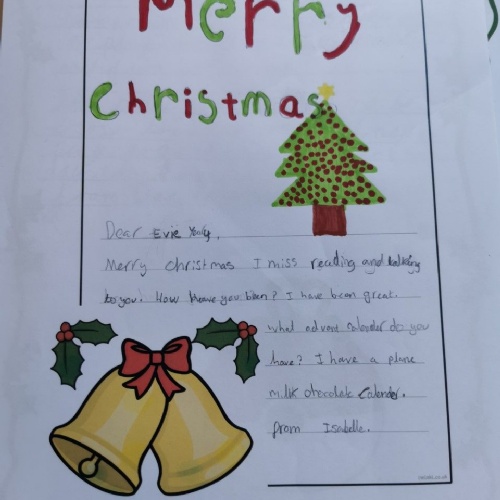 Merry
Christmas
Dear Evie
Merry christmas I miss reading and talking
to you! How have you been? I have been great.
what advent calender do you
have? I have a plane
milk chocolate calender.
from Isabelle.